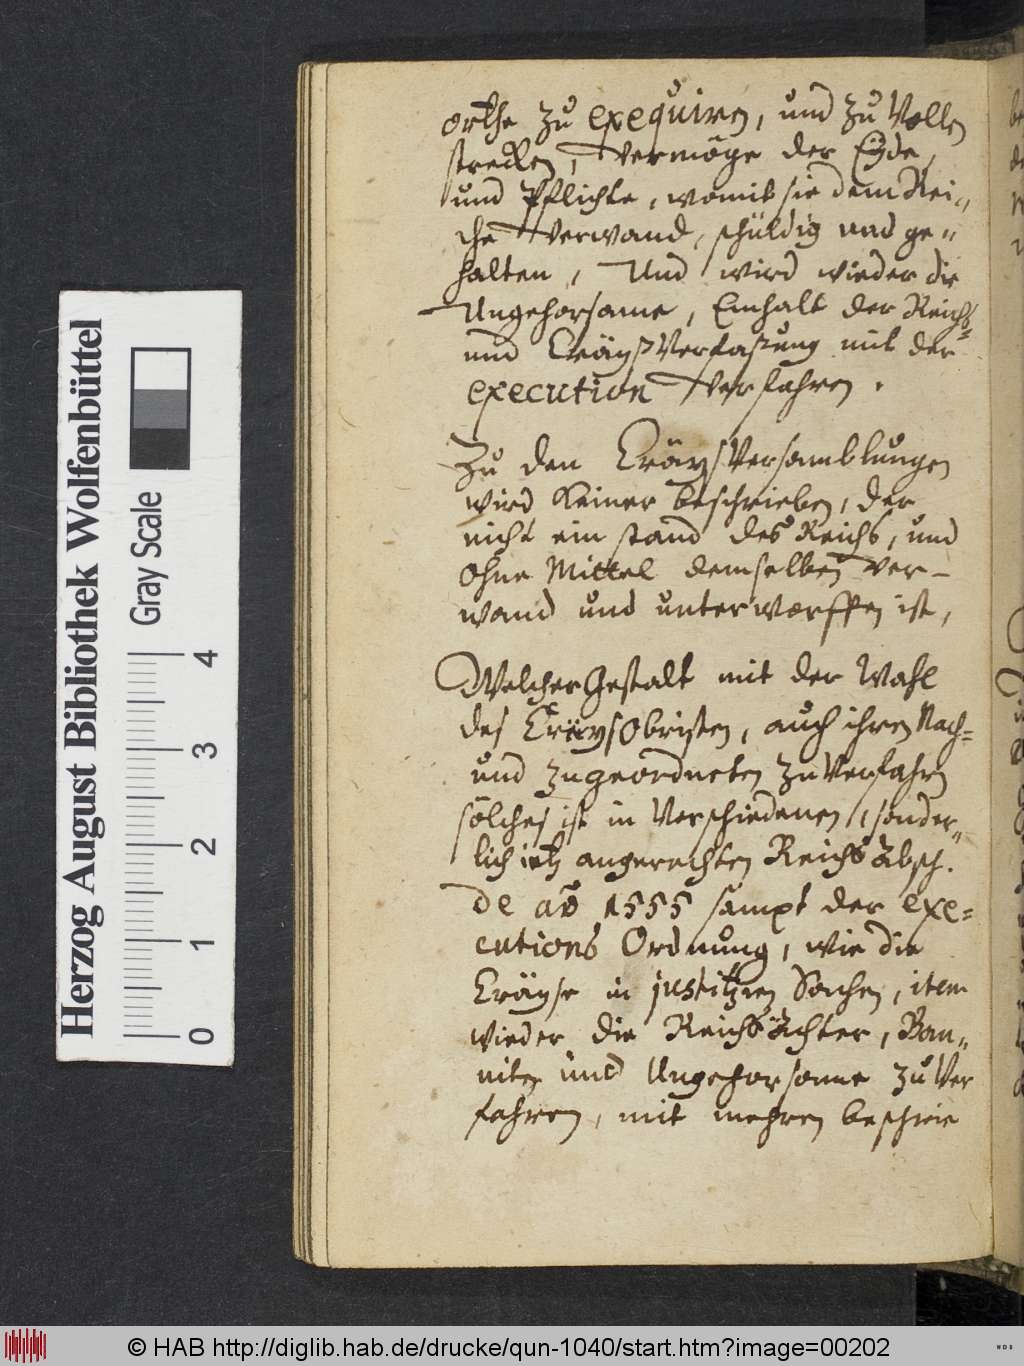 orthe zu exequiren, und zu Vollen
strecken, vermöge der Eÿde,
und Pflichte, womit sie dem Rei„
che verwand, schüldig und ge„
halten, Und wird wieder die
Ungehorsame, Einhalt der Reichs=
und CräyßVerfaßung mit der
execution verfahren.
Zu den CräysVersamblungen
wird keiner beschrieben, der
nicht ein stand des Reichs, und
ohne Mittel demselben ver-
wand und unterworffen ist,
Welcher Gestalt mit der Wahl
des CräysObristen, auch ihren Nach=
und zugeordneten zuverfahren
sölches ist in Verschiedenen, sonder„
lich angerechten Reichs Absch.
de ao 1555 sampt der exe=
cutions Ordnung, wie die
Cräyse in justitzien Sachen, item
wieder die ReichsÄchter, Ban„
niten und Ungehorsame zu Ver
fahren, mit mehren beschrie
Herzog August Bibliothek Wolfenbüttel
Gray Scale
0 1 2 3 4
© HAB http://diglib.hab.de/drucke/qun-1040/start.htm?image=00202